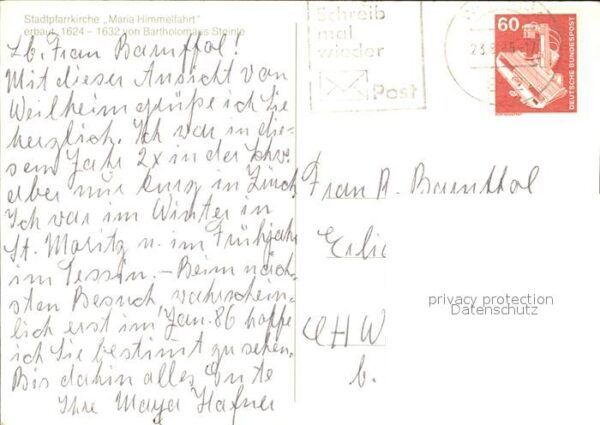 Stadtpfarrkirche „Maria Himmelfahrt"
erbaut 1624 – 1632 von Bartholomäus Steinle
Lb. Frau Barnthol!
Mit dieser Ansicht von
Weilheim grüße ich Sie
herzlich. Ich war in die-
sem Jahr 2x in der Schw.
aber nur kurz in Zürich
Ich war im Winter in
St. Moritz u. im Frühjahr
im Tessin. – Beim näch-
sten Besuch, wahrschein-
lich erst im Jan. 86 hoffe
ich Sie bestimmt zu sehen.
Bis dahin alles Gute
Ihre Maya Hafner
Schreib
mal
wieder
Post
60
DEUTSCHE BUNDESPOST
Frau A. Barnthol
Erlic
CHW
b.
privacy protection
Datenschutz